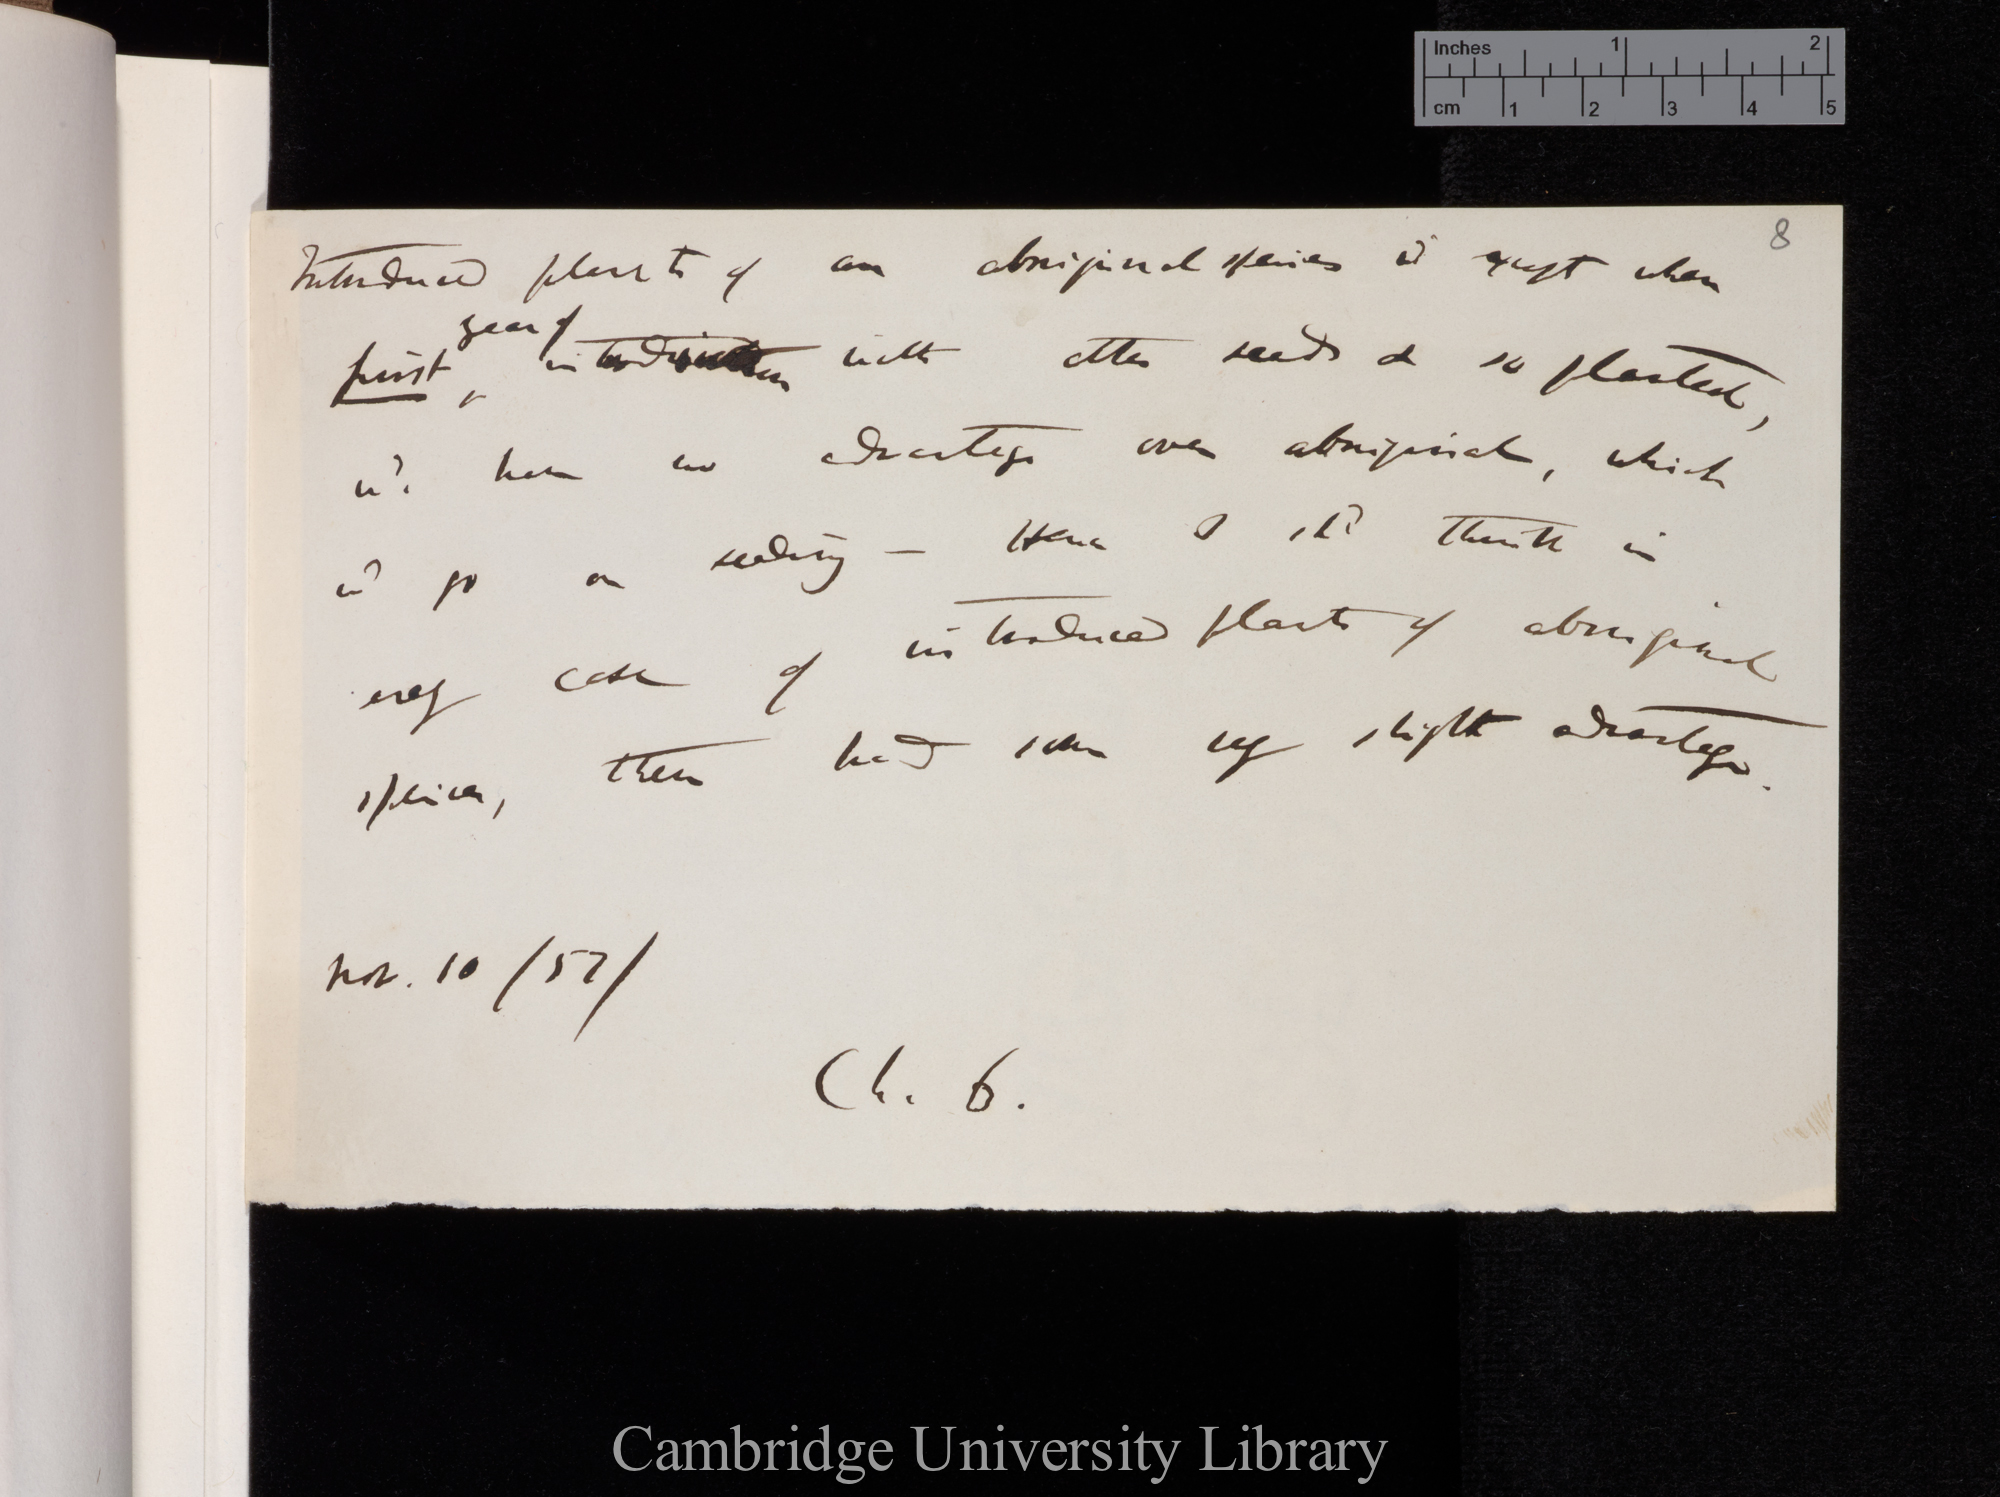 Inches 1 2
cm 1 2 3 4 5
8
Introduced plants of an aboriginal species wd except when
year of
first, introduction with other seeds & so planted,
wd. have no advantage over aboriginal, which
wd go on seeding — Hence I shd think in
every case of introduced plants of aboriginal
species, there had some very slight advantage.
Nov. 10 /57/
Ch. 6.
Cambridge University Library